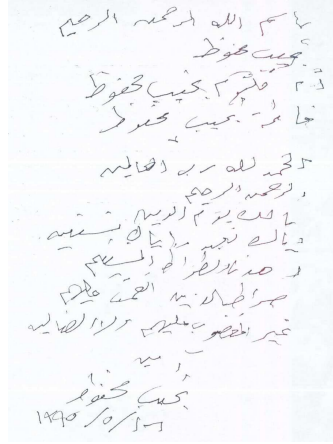 باسم الله الرحمن الرحيم
نجيب محفوظ
أم كلثوم نجيب محفوظ
فاطمة نجيب محفوظ
الحمد لله رب العالمين
الرحمن الرحيم
مالك يوم الدين
إياك نعبد وإياك نستعين
اهدنا الصراط المستقيم
صراط الذين أنعمت عليهم
غير المغضوب عليهم ولا الضالين
آمين
نجيب محفوظ